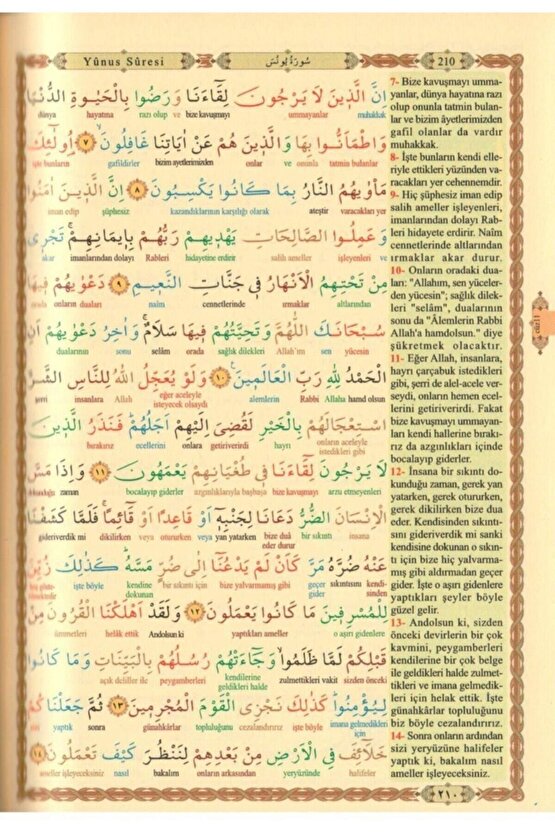 Yûnus Sûresi
سُورَةُ يُونُسَ
210
اِنَّ الَّذ۪ينَ لَا يَرْجُونَ لِقَٓاءَنَا وَرَضُوا بِالْحَيٰوةِ الدُّنْيَا
dünya hayatına razı olup ve bize kavuşmayı ummayanlar muhakkak
وَاطْمَاَنُّوا بِهَا وَالَّذ۪ينَ هُمْ عَنْ اٰيَاتِنَا غَافِلُونَ ﴿٧﴾ اُو۬لٰٓئِكَ
işte bunların gafildirler bizim ayetlerimizden onlar ve onunla tatmin bulanlar
مَأْوٰيهُمُ النَّارُ بِمَا كَانُوا يَكْسِبُونَ ﴿٨﴾ اِنَّ الَّذ۪ينَ اٰمَنُوا
iman edip şüphesiz kazandıklarının karşılığı olarak ateştir varacakları yer
وَعَمِلُوا الصَّالِحَاتِ يَهْد۪يهِمْ رَبُّهُمْ بِا۪يمَانِهِمْۚ تَجْر۪ي
akar imanlarından dolayı Rableri hidayetine erdirir salih ameller işleyenleri ve
مِنْ تَحْتِهِمُ الْاَنْهَارُ ف۪ي جَنَّاتِ النَّع۪يمِ ﴿٩﴾ دَعْوٰيهُمْ ف۪يهَا
orada onların duaları naîm cennetlerinde ırmaklar altlarından
سُبْحَانَكَ اللّٰهُمَّ وَتَحِيَّتُهُمْ ف۪يهَا سَلَامٌۚ وَاٰخِرُ دَعْوٰيهُمْ اَنِ
dualarının sonu selâm orada sağlık dilekleri Allah'ım sen yücesin
الْحَمْدُ لِلّٰهِ رَبِّ الْعَالَم۪ينَ۟ ﴿١٠﴾ وَلَوْ يُعَجِّلُ اللّٰهُ لِلنَّاسِ الشَّرَّ
şerri insanlara Allah eğer aceleyle isteyecek olsaydı alemlerin Rabbi Allaha hamd olsun
اسْتِعْجَالَهُمْ بِالْخَيْرِ لَقُضِيَ اِلَيْهِمْ اَجَلُهُمْۜ فَنَذَرُ الَّذ۪ينَ
bırakırız ecellerini onlara getiriverirdi hayrı onların aceleyle istedikleri gibi
لَا يَرْجُونَ لِقَٓاءَنَا ف۪ي طُغْيَانِهِمْ يَعْمَهُونَ ﴿١١﴾ وَاِذَا مَسَّ
dokunduğu zaman bocalayıp giderler azgınlıklarıyla başbaşa bize kavuşmayı arzu etmeyenleri
الْاِنْسَانَ الضُّرُّ دَعَانَا لِجَنْبِه۪ٓ اَوْ قَاعِدًا اَوْ قَٓائِمًاۚ فَلَمَّا كَشَفْنَا
gideriverdik mi dikilirken veya otururken veya yan yatarken bize duâ eder durur bir sıkıntı insana
عَنْهُ ضُرَّهُ مَرَّ كَاَنْ لَمْ يَدْعُنَٓا اِلٰى ضُرٍّ مَسَّهُۜ كَذٰلِكَ زُيِّنَ
işte böyle kendine dokunan bir sıkıntı için bize yalvarmamış gibi geçer gider sıkıntısını kendisinden
لِلْمُسْرِف۪ينَ مَا كَانُوا يَعْمَلُونَ ﴿١٢﴾ وَلَقَدْ اَهْلَكْنَا الْقُرُونَ مِنْ
ümmetleri helâk ettik Andolsun ki yaptıkları ameller o aşırı gidenlere
قَبْلِكُمْ لَمَّا ظَلَمُواۙ وَجَٓاءَتْهُمْ رُسُلُهُمْ بِالْبَيِّنَاتِ وَمَا كَانُوا
açık deliller ile peygamberleri kendilerine geldikleri halde zulmettikleri vakit sizden önceki
لِيُؤْمِنُواۜ كَذٰلِكَ نَجْزِي الْقَوْمَ الْمُجْرِم۪ينَ ﴿١٣﴾ ثُمَّ جَعَلْنَاكُمْ
sizi yaptık sonra günahkârlar topluluğunu cezalandırırız işte böyle imana gelmedikleri için
خَلَٓائِفَ فِي الْاَرْضِ مِنْ بَعْدِهِمْ لِنَنْظُرَ كَيْفَ تَعْمَلُونَ ﴿١٤﴾
ameller işleyeceksiniz nasıl bakalım onların arkasından yeryüzünde halifeler
7- Bize kavuşmayı umma-
yanlar, dünya hayatına razı
olup onunla tatmin bulan-
lar ve bizim âyetlerimizden
gafil olanlar da vardır
muhakkak.
8- İşte bunların kendi elle-
riyle ettikleri yüzünden va-
racakları yer cehennemdir.
9- Hiç şüphesiz iman edip
salih ameller işleyenleri,
imanlarından dolayı Rab-
leri hidayete erdirir. Naîm
cennetlerinde altlarından
ırmaklar akar durur.
10- Onların oradaki dua-
ları: "Allahım, sen yüceler-
den yücesin"; sağlık dilek-
leri "selâm", dualarının
sonu da "Âlemlerin Rabbi
Allah'a hamdolsun." diye
şükretmek olacaktır.
11- Eğer Allah, insanlara,
hayrı çarçabuk istedikleri
gibi, şerri de alel-acele ver-
seydi, onların hemen ecel-
lerini getiriverirdi. Fakat
bize kavuşmayı ummayan-
ları kendi hallerine bırakı-
rız da azgınlıkları içinde
bocalayıp giderler.
12- İnsana bir sıkıntı do-
kunduğu zaman, gerek yan
yatarken, gerek otururken,
gerek dikilirken bize dua
eder. Kendisinden sıkıntı-
sını gideriverdik mi sanki
kendisine dokunan o sıkın-
tı için bize hiç yalvarma-
mış gibi aldırmadan geçer
gider. İşte o aşırı gidenlere
yaptıkları şeyler böyle
güzel gelir.
13- Andolsun ki, sizden
önceki devirlerin bir çok
kavmini, peygamberleri
kendilerine bir çok belge
ile geldikleri halde zulmet-
tikleri ve imana gelmedik-
leri için helak ettik. İşte
günahkârlar topluluğunu
biz böyle cezalandırırız.
14- Sonra onların ardından
sizi yeryüzüne halifeler
yaptık ki, bakalım nasıl
ameller işleyeceksiniz.
cüz11
٢١٠